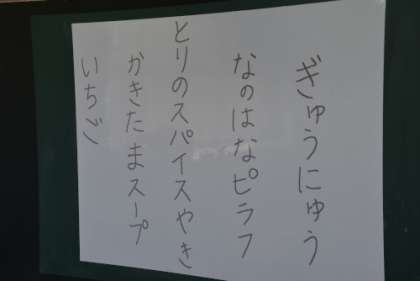 ぎゅうにゅう
なのはなピラフ
とりのスパイスやき
かきたまスープ
いちご